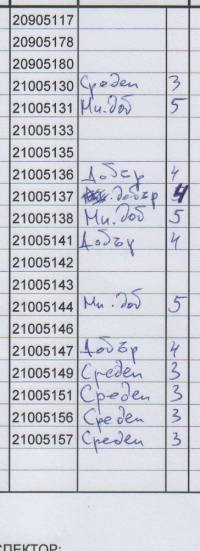 20905117
20905178
20905180
21005130 Среден 3
21005131 Мн. доб 5
21005133
21005135
21005136 Добър 4
21005137 добър 4
21005138 Мн. доб 5
21005141 Добър 4
21005142
21005143
21005144 Мн. доб 5
21005146
21005147 Добър 4
21005149 Среден 3
21005151 Среден 3
21005156 Среден 3
21005157 Среден 3
СПЕКТОР: